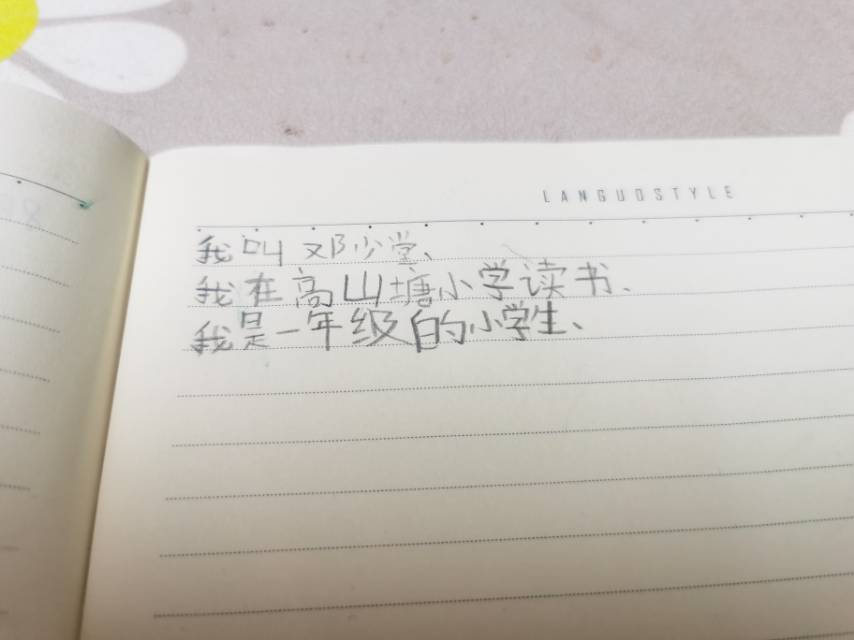 LANGUOSTYLE
我叫邓少堂、
我在高山塘小学读书、
我是一年级的小学生、